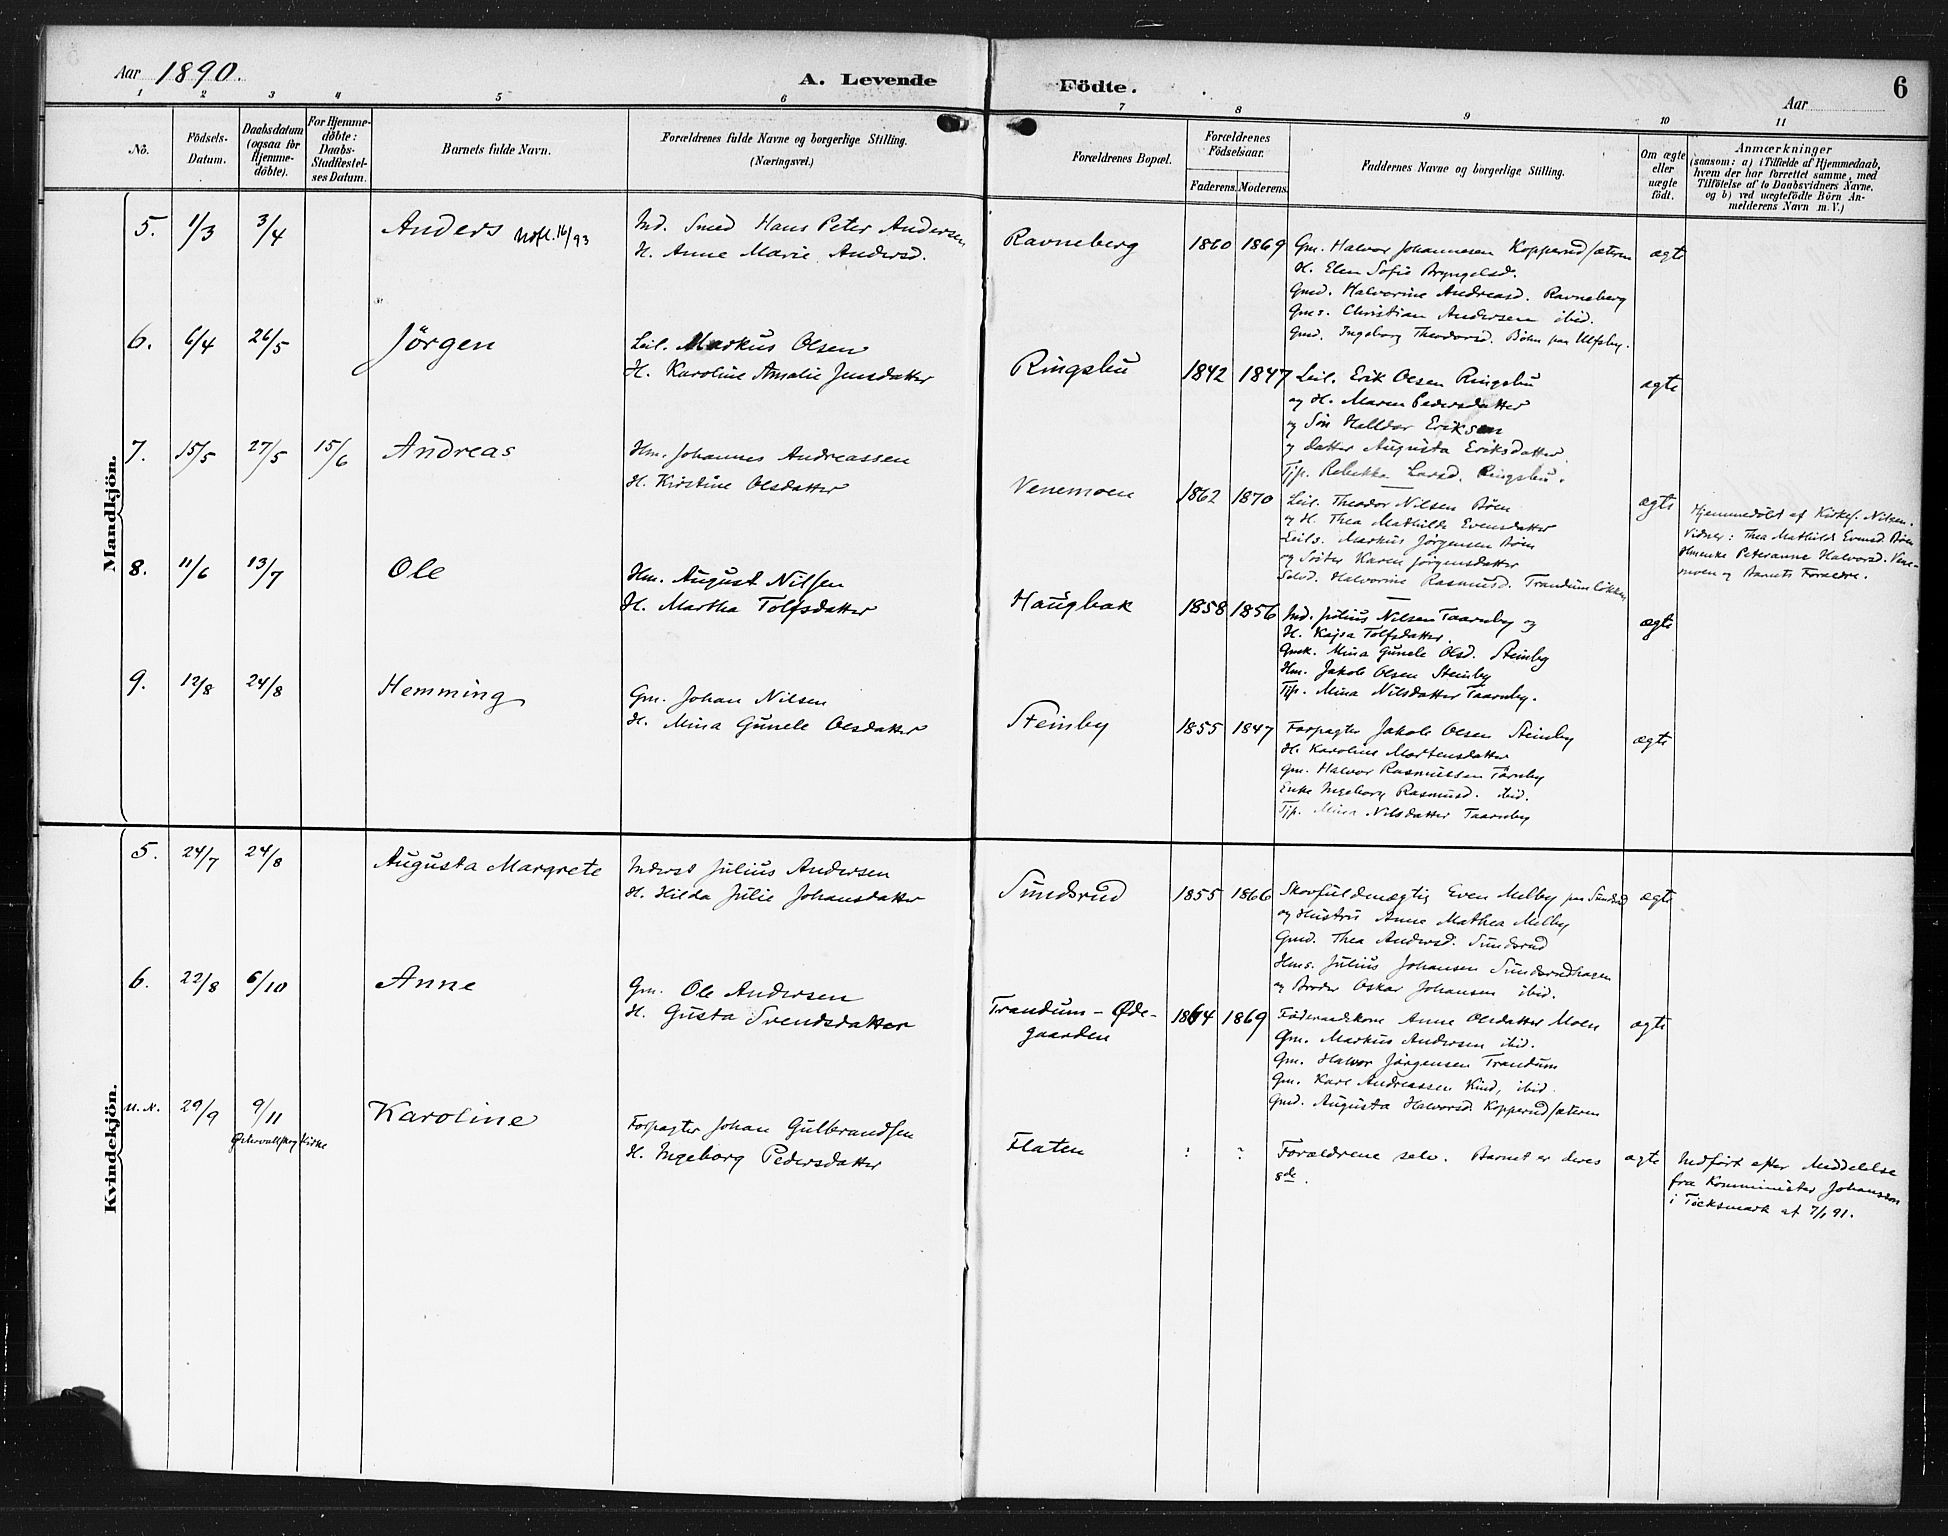 Aar 1890.
A. Levende Födte.
6
Aar
1 2 3 4 5 6 7 8 9 10 11
No.
Födsels-Datum.
Daabsdatum (ogsaa for Hjemme-döbte).
For Hjemme-döbte: Daabs-Stadfæstel-ses Datum.
Barnets fulde Navn.
Forældrenes fulde Navne og borgerlige Stilling.
(Næringsvei.)
Forældrenes Bopæl.
Forældrenes Födselsaar.
Faderens. Moderens.
Faddernes Navne og borgerlige Stilling.
Om ægte eller uægte födt.
Anmærkninger
(saasom: a) i Tilfælde af Hjemmedaab,
hvem der har forrettet samme, med
Tilföielse af to Daabsvidners Navne,
og b) ved uægtefödte Börn An-
melderens Navn m. V.)
Mandkjön.
5. 1/3 3/4 Anders 16/93
Ind. Smed Hans Peter Andersen
H. Anne Marie Andersd.
Ravneberg 1860 1869
Gm. Halvor Johannesen Kopperudsæteren
H. Elen Sofie Bryngelsd.
Gmd. Halvorine Andreasd. Ravneberg
Gms. Christian Andersen ibid.
Gmd. Ingeborg Theodorsd. Böhn paa Ulfsby.
ægte
6. 6/4 26/5 Jörgen
Leil. Markus Olsen
H. Karoline Amalie Jensdatter
Ringsbu 1842 1847
Leil. Erik Olsen Ringsbu
og H. Maren Pedersdatter
og Sön Halldor Eriksen
og datter Augusta Eriksdatter
Tjp. Rebekka Larsd. Ringsbu.
ægte
7. 15/5 27/5 15/6 Andreas
Hm. Johannes Andreassen
H. Kirstine Olsdatter
Venemoen 1862 1870
Leil. Theodor Nilsen Böen
og H. Thea Mathilde Evensdatter
Leils. Markus Jörgensen Böen
og Söster Karen Jörgensdatter
Selvd. Halvorine Rasmusd. Trandumlökken
ægte
Hjemmedöbt af Kirkes. Nilsen.
Vidner: Thea Mathilde Evensd. Böen
Hmenke Peteranne Halvorsd. Vene-
moen og Barnets Forældre.
8. 11/6 13/7 Ole
Hm. August Nilsen
H. Martha Tolfsdatter
Haugbak 1858 1856
Ind. Julius Nilsen Taarnby og
H. Kajsa Tolfsdatter
Gmk. Mina Gunele Olsd. Steinby
Hm. Jakob Olsen Steinby
Tjp. Mina Nilsdatter Taarnby.
ægte
9. 12/8 24/8 Hemming
Gm. Johan Nilsen
H. Mina Gunele Olsdatter
Steinby 1855 1847
Forpagter Jakob Olsen Steinby
H. Karoline Martensdatter
Gm. Halvor Rasmussen Tårnby
Enke Ingeborg Rasmusd. ibid.
Tjp. Mina Nilsdatter Taarnby
ægte
Kvindekjön.
5. 24/7 24/8 Augusta Margrete
Inderst Julius Andersen
H. Hilda Julie Johansdatter
Sundsrud 1855 1866
Skovfuldmægtig Even Melby paa Sundsrud
og Hustru Anne Mathea Melby
Gmd. Thea Andersd. Sundsrud
Hms. Julius Johansen Sundsrudhagen
og Broder Oskar Johansen ibid.
ægte
6. 22/8 6/10 Anne
Gm. Ole Andersen
H. Gusta Svendsdatter
Trandum-Öde-
gaarden
1864 1869
Föderaadskone Anne Olsdatter Moen
Gm. Markus Andersen ibid.
Gm. Halvor Jörgensen Trandum
Gm. Karl Andreassen Kind, ibid.
Gmd. Augusta Halvorsd. Kopperudsæteren
ægte
u. N. 29/9 9/11 Karoline
Östervallskog Kirke
Forpagter Johan Gulbrandsen
H. Ingeborg Pedersdatter
Flaten ? ?
Forældrene selv. Barnet er deres
8de.
ægte
Indfört efter Meddelelse
fra Komminister Johansson
i Töcksmark af 7/1 91.